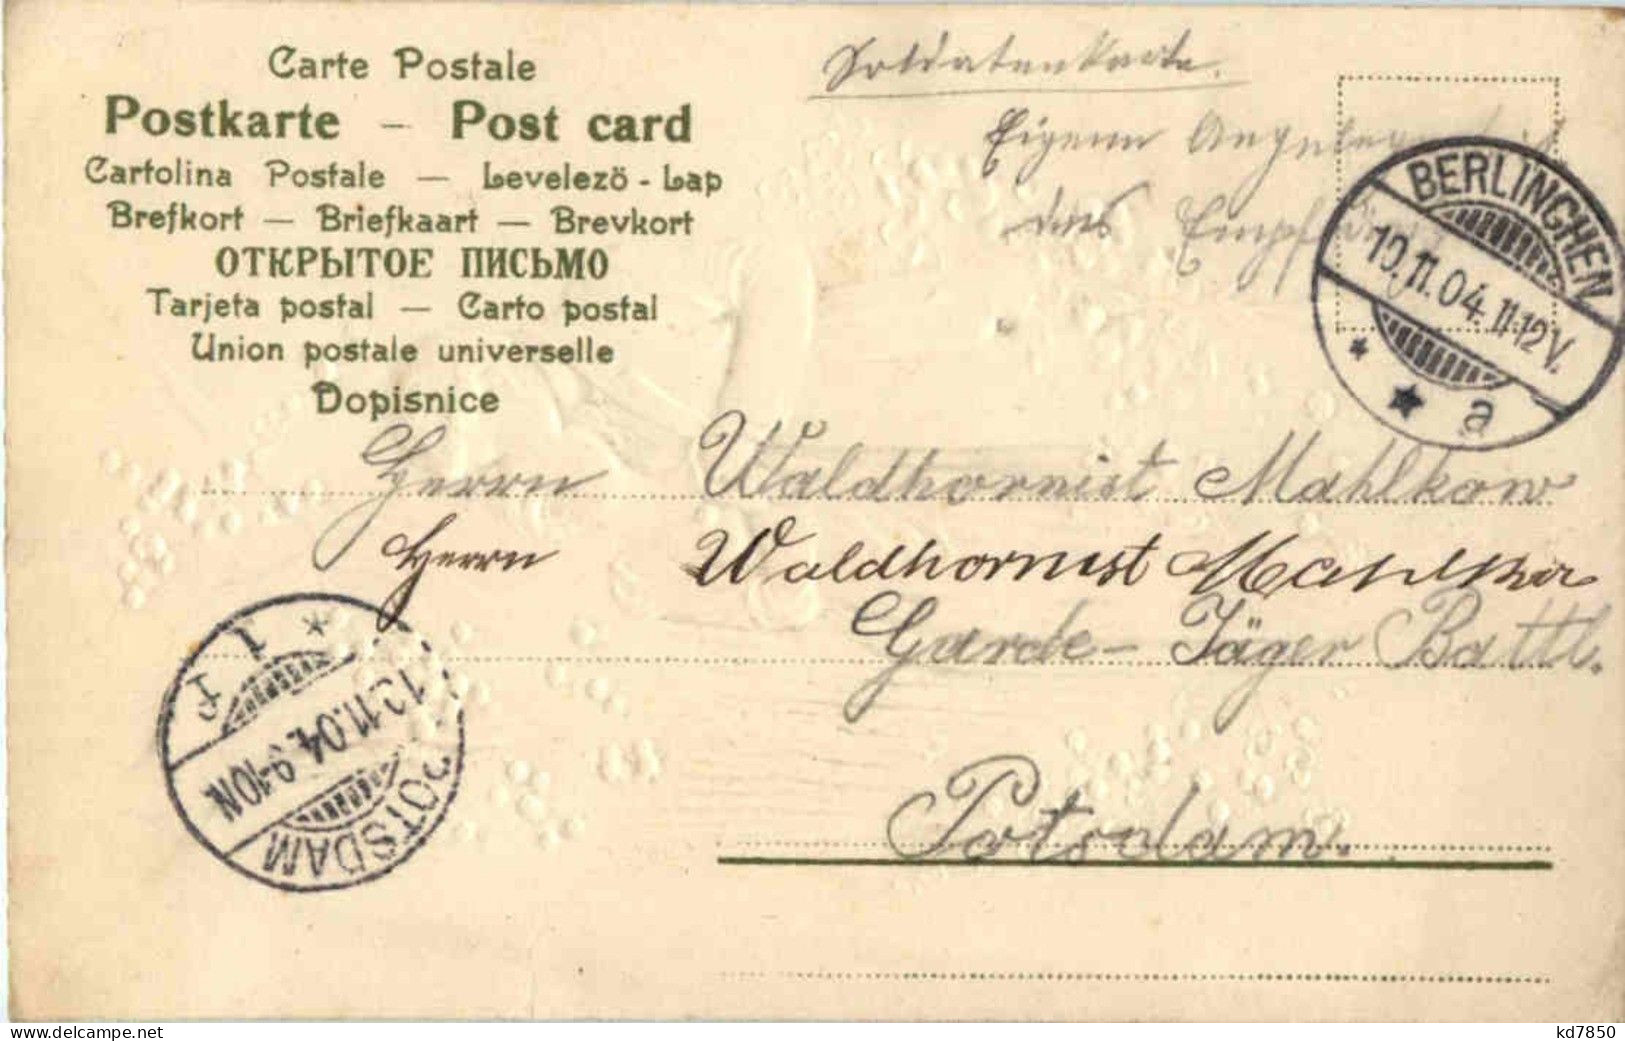 Carte Postale
Postkarte – Post card
Cartolina Postale — Levelező - Lap
Brefkort — Briefkaart — Brevkort
ОТКРЫТОЕ ПИСЬМО
Tarjeta postal — Carto postal
Union postale universelle
Dopisnice
Soldatenkarte.
Eigene Angelegenheit
des Empfängers
BERLINGHEN
10.11.04. 11-12V.
* * a
Herrn Waldhornist Mahlkow
Herrn Waldhornist
Garde-Jäger Battl.
Potsdam.
POTSDAM
11.04. 9-10N.
* 1
delcampe.net
kd7850